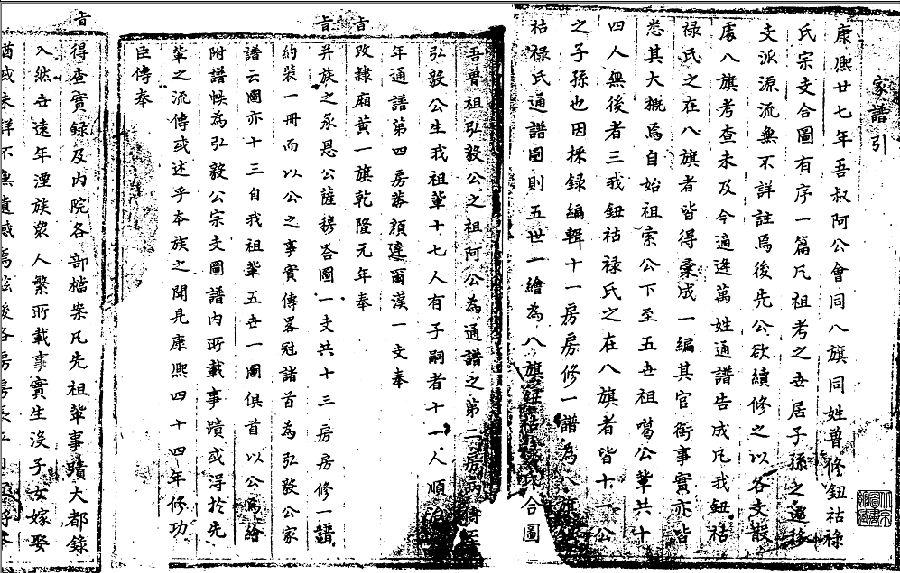 家譜引
康熙廿七年吾叔阿公會同八旗同姓曾修鈕祜祿
氏宗支合圖有序一篇凡祖考之
支派源流無不詳註焉後先公欲續修之以各支散
處八旗考查未及今適逢萬姓通譜告成凡我鈕祜
祿氏之在八旗者皆得彙成一編其官銜事實亦皆
悉其大概為自始祖索公下至五世祖噶公輩共十
四人無後者三我鈕祜祿氏之在八旗者皆十一公
之子孫也因採錄編輯十一房房修一譜為
祜祿氏通譜圖則五世一繪為八旗鈕祜祿氏合圖
吾曾祖弘毅公之祖阿公為通譜之第二房
弘毅公生我祖輩十七人有子嗣者十一人順治
年通譜第四房蓁頟達爾漢一支奉
旨
改隸廂黃一旗乾隆元年奉
旨
弁族之承恩公薩穆哈圖一支共十三房房修一譜
約裝一冊而以公之事實傳畧冠諸首為弘毅公家
譜云圖亦十三自我祖輩五世一圖俱首以公為繪
附譜帙為弘毅公宗支圖譜內所載事蹟或得於先
輩之流傳或述乎本族之聞見康熙四十四年修功
臣傳奉
旨
得查實錄及內院各部檔案凡先祖輩事蹟大都錄
入然世遠年湮族衆人繁所載事實生沒子女嫁娶
猶或未詳不無遺憾焉茲後各房房長